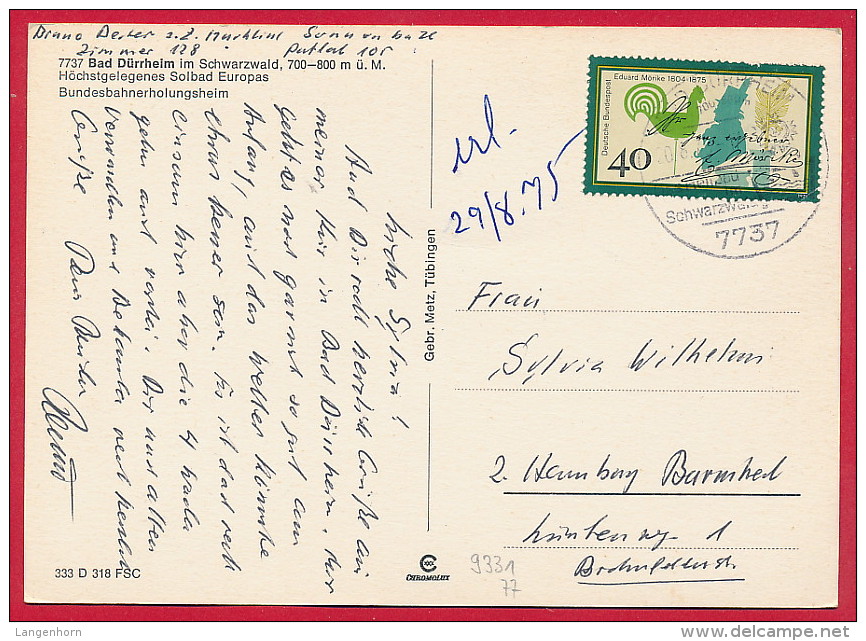 Zimmer 128
7737 Bad Dürrheim im Schwarzwald, 700–800 m ü. M.
Höchstgelegenes Solbad Europas
Bundesbahnerholungsheim
Liebe Sylvia!
Auch Dir recht herzliche Grüße aus
meiner Kur in Bad Dürrheim. Mir
geht es noch garnicht so gut am
Anfang, auch das Wetter könnte
etwas besser sein. Es ist doch recht
einsam hier aber die 4 Wochen
gehn auch vorbei. Dir und allen
Verwandten und Bekannten recht herzliche
Grüße Dein Bruder
333 D 318 FSC
Gebr. Metz, Tübingen
CHROMOLUX
erl.
29/8.75
Deutsche Bundespost
Eduard Mörike 1804-1875
40
Schwarzwald
7737
Frau
Sylvia Wilhelmi
2. Hamburg
1
9331
77
Langenhorn
delcampe.net